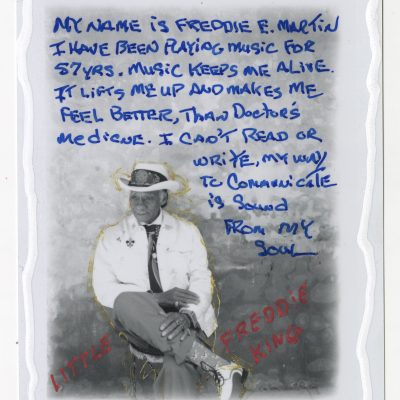 MY NAME IS FREDDIE E. MARTIN
I HAVE BEEN PLAYING MUSIC FOR
57YRS. MUSIC KEEPS ME ALIVE.
IT LIFTS ME UP AND MAKES ME
FEEL BETTER, THAN DOCTOR'S
MEDICNE. I CAN'T READ OR
WRITE, MY WAY
TO COMMUNICATE
IS SOUND
FROM MY
SOUL
LITTLE FREDDIE
KING